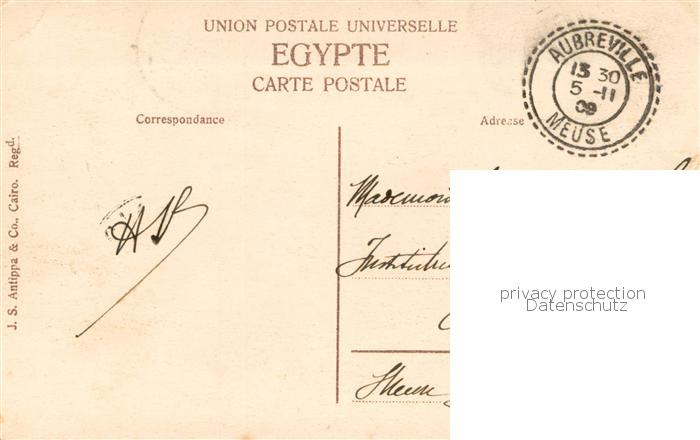 UNION POSTALE UNIVERSELLE
EGYPTE
CARTE POSTALE
AUBREVILLE
13 30
5 -11
09
MEUSE
Correspondance
Adresse
J. S. Antippa & Co., Cairo. Regd.
privacy protection
Datenschutz